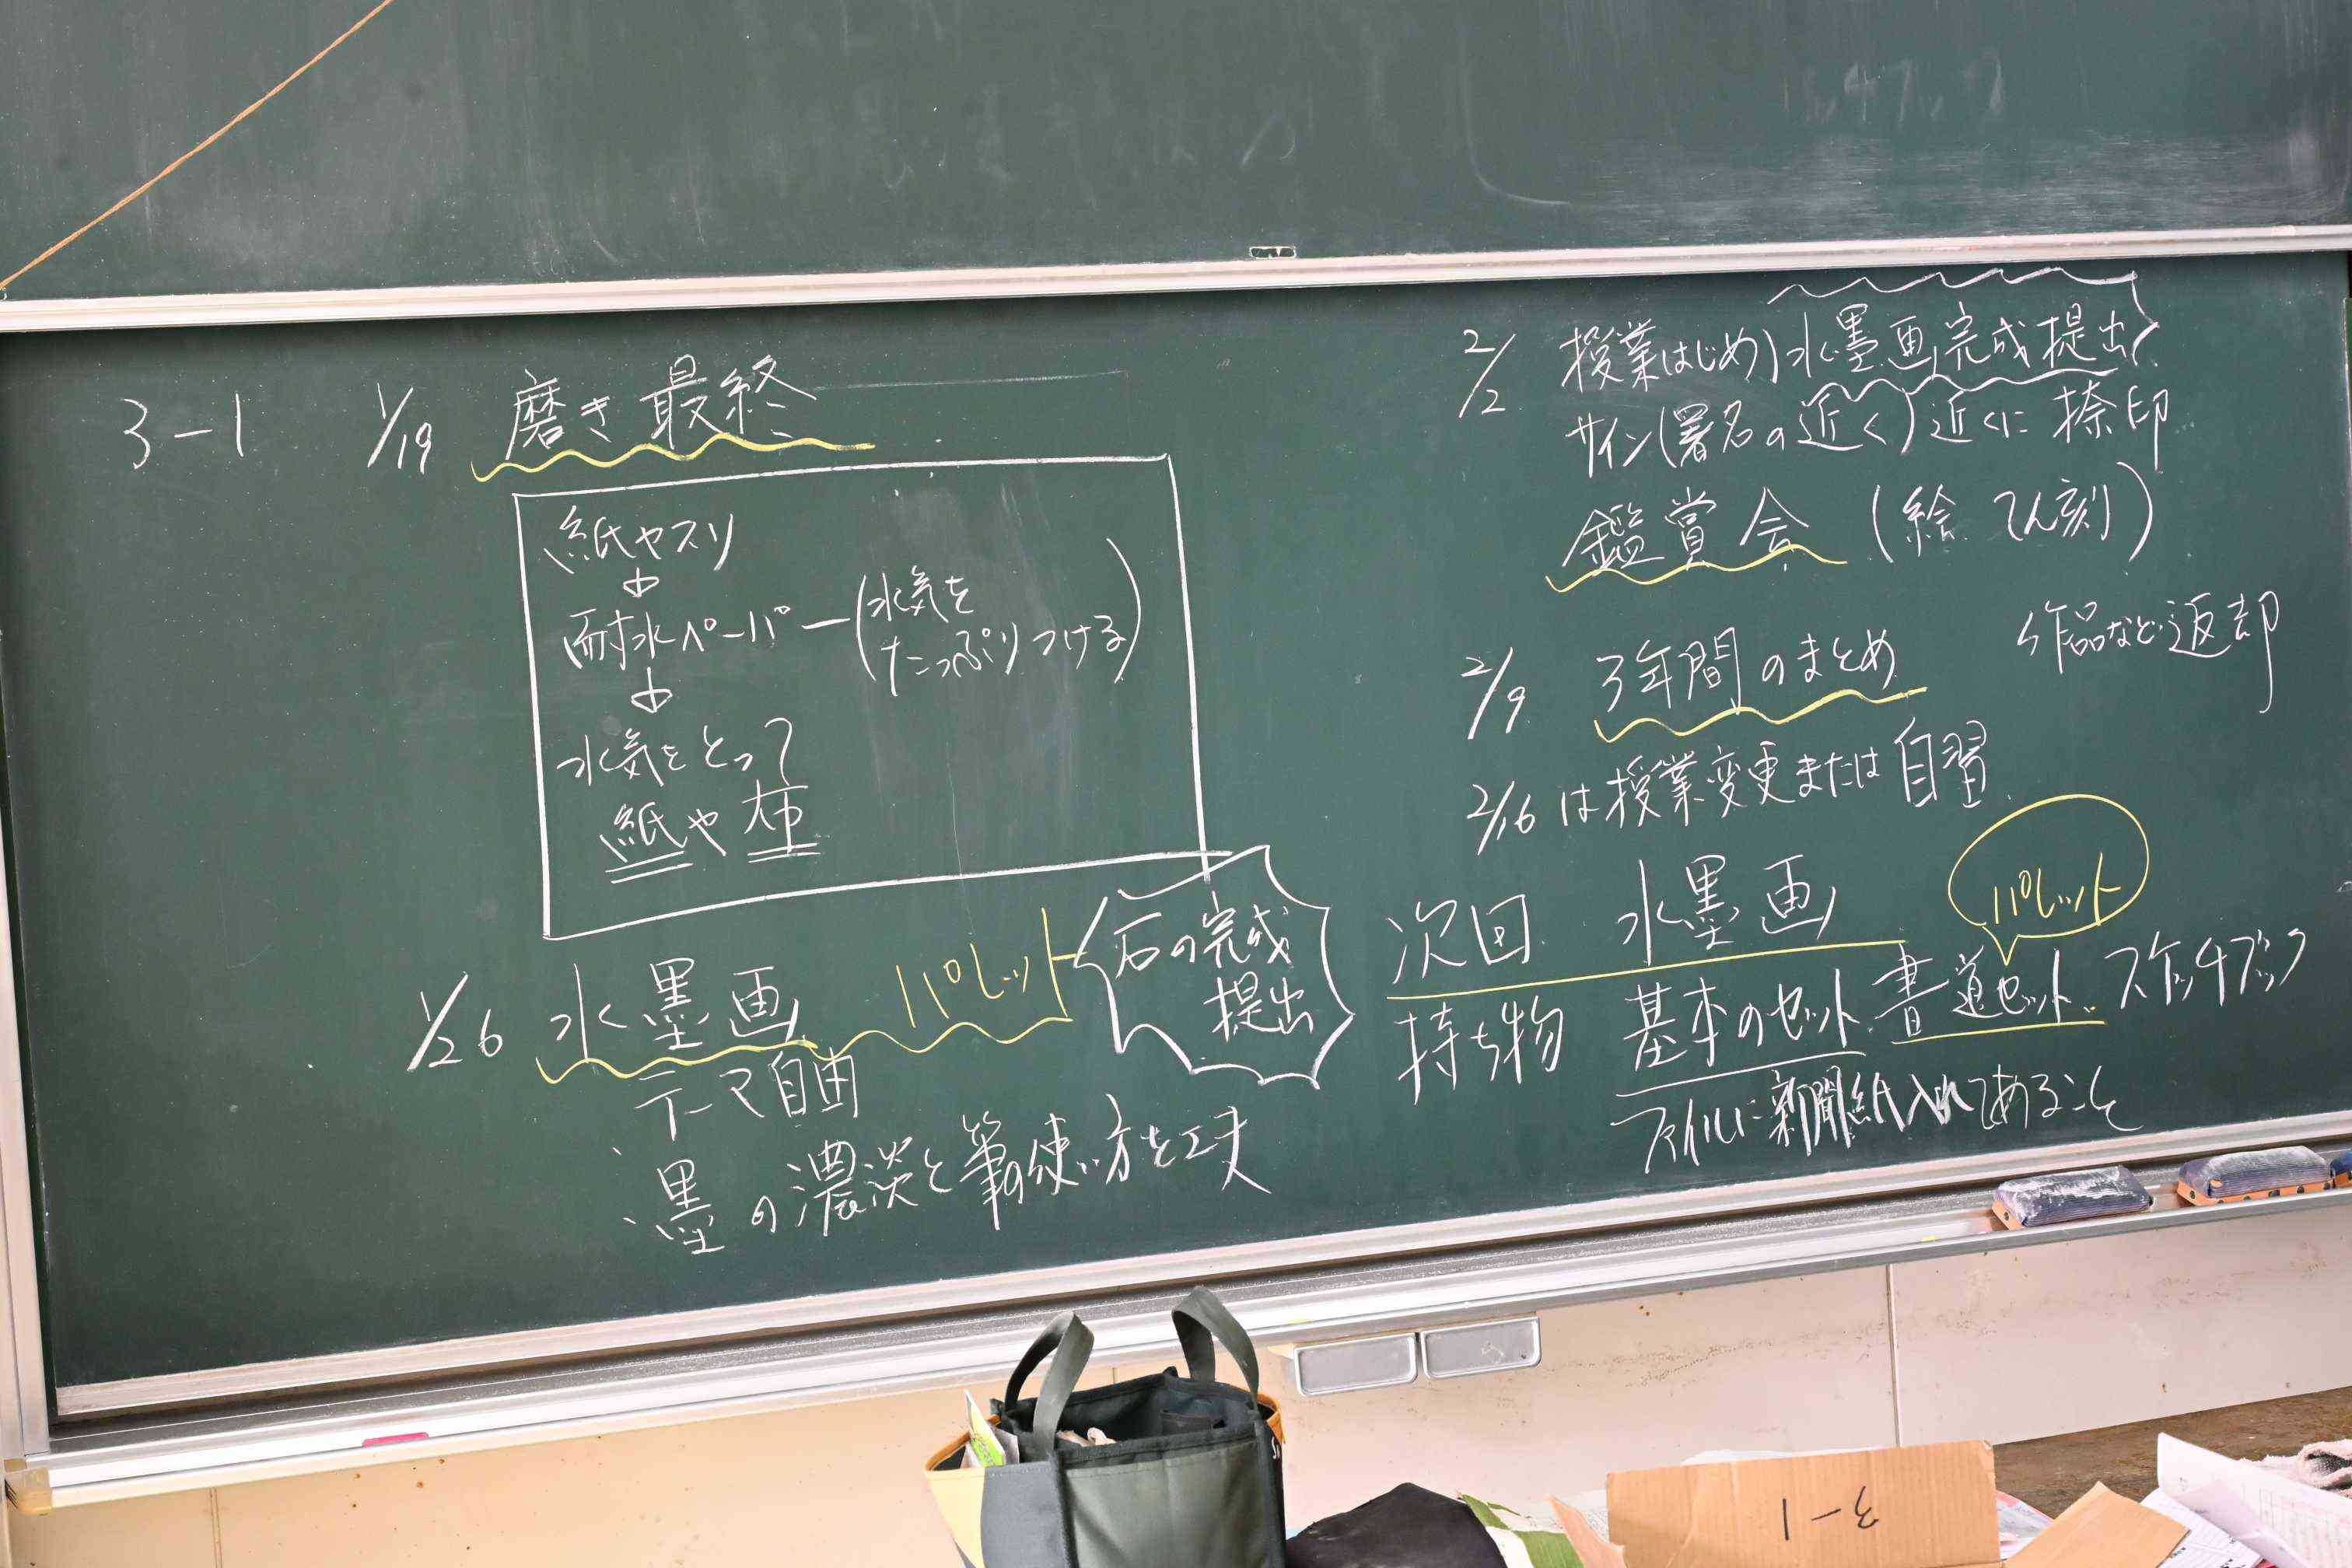 3-1 1/19 磨き最終
紙ヤスリ
↓
耐水ペーパー(水気をたっぷりつける)
↓
水気をとって
紙や布
1/26 水墨画 パレット
石の完成
提出
テーマ自由
墨の濃淡と筆の使い方を工夫
2/2 授業はじめ)水墨画完成提出
サイン(署名の近く)近くに捺印
鑑賞会 (絵 てん刻)
2/9 3年間のまとめ 作品など返却
2/16は授業変更または自習
次回 水墨画
パレット
持ち物 基本のセット 書道セット スケッチブック
ファイルに新聞紙入れてあること
3-1